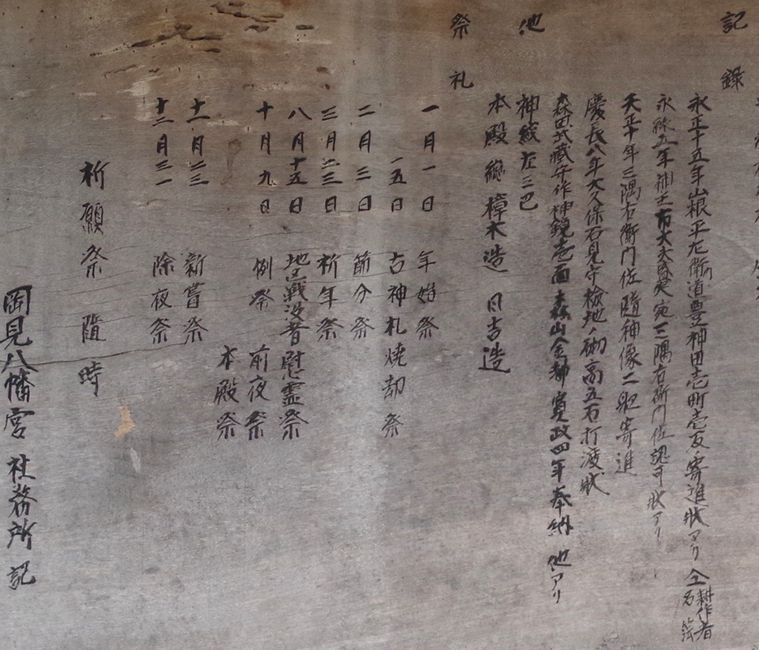 記録
永正十五年山根平左衛道豊神田壱町壱反ノ寄進状アリ 仝耕作者名簿
永禄五年神主 宛三隅右衛門佐認可状アリ
天正十年三隅右衛門佐随神像二躯寄進
慶長八年大久保石見守検地ノ砌高五石打渡状
森田武蔵守作神鏡壱面 森山金都 寛政四年奉納 他アリ
他
神紋左三巴
本殿総樟木造 日吉造
祭礼
一月一日 年始祭
一五日 古神札焼却祭
二月三日 節分祭
三月廿三日 祈年祭
八月十五日 地区戦没者慰霊祭
十月九日 例祭 前夜祭
本殿祭
十一月廿三 新嘗祭
十二月三一 除夜祭
祈願祭 随時
岡見八幡宮 社務所 記